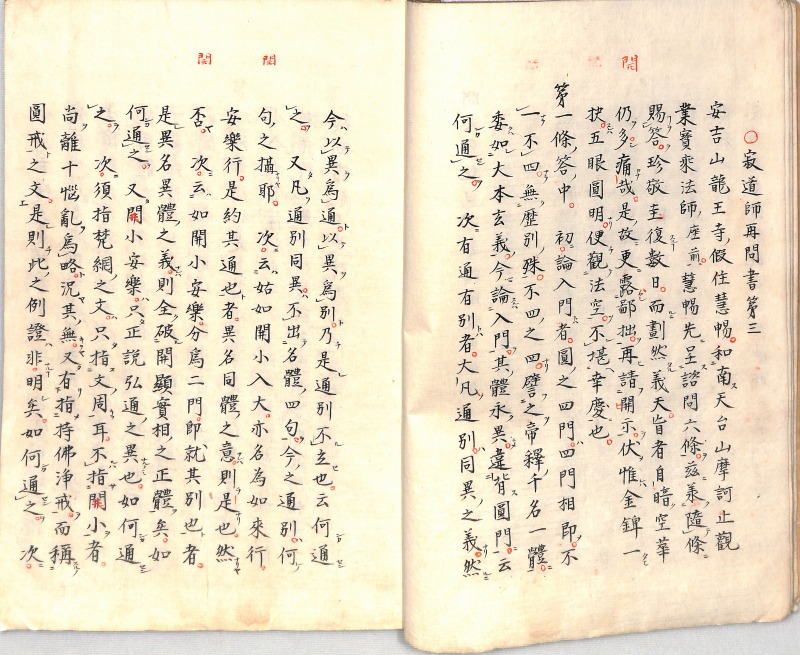 開
寂道師再問書第三
安吉山龍王寺假住慧暢和南天台山摩訶止觀
業寳乘法師座前慧暢先呈諮問六條茲羕隨條
賜答珍敬圭復數日而劃然義天旨者自暗空華
仍多痛哉是故更露鄙拙再請開示伏惟金錍一
抉五眼圓明便觀法空不堪幸慶也
第一條答中初論入門者圓之四門四門相即不
一不四無歷別殊不四之四譬之帝釋千名一體
委如大本玄義今論入門其體永異違背圓門云
何通之 次有通有別者大凡通別同異之義然
開 開
今以異爲通以異爲別乃是通別不立也云何通
之 又凡通別同異不出名體四句今之通別何
句之攝耶 次云姑如開小入大亦名為如來行
安樂行是約其通也者異名同體之意則是也然
否 次云如開小安樂分爲二門即就其別也者
是異名異體之義則全破開顯實相之正體矣如
何通之 又開小安樂只正說弘通之異也如何通
之 次須指梵網之文只指文周耳不指開小者
尚離十惱亂爲略況其無又有指持佛浄戒而稱
圓戒之文是則此之例證非明矣如何通之 次